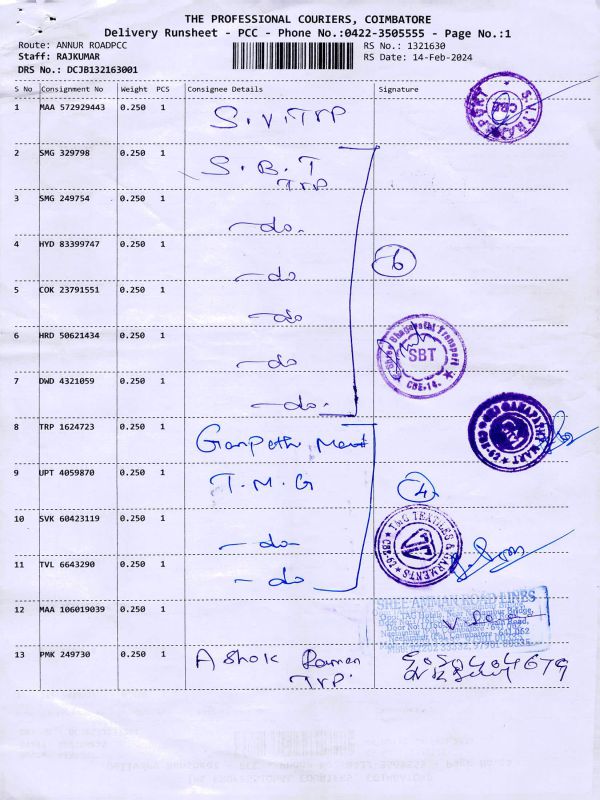 THE PROFESSIONAL COURIERS, COIMBATORE
Delivery Runsheet - PCC - Phone No.:0422-3505555 - Page No.:1
Route: ANNUR ROADPCC
RS No.: 1321630
Staff: RAJKUMAR
RS Date: 14-Feb-2024
DRS No.: DCJB132163001
S No Consignment No Weight PCS Consignee Details Signature
1 MAA 572929443 0.250 1 S.V.TRP
2 SMG 329798 0.250 1 S.B.T
TRP
3 SMG 249754 0.250 1 -do.
4 HYD 83399747 0.250 1 -do
6
5 COK 23791551 0.250 1 -do
6 HRD 50621434 0.250 1 -do
Shree Bhagavathi Transport
SBT
CBE-14.
7 DWD 4321059 0.250 1 -do.
8 TRP 1624723 0.250 1 Ganpath Mart
9 UPT 4059870 0.250 1 T.M.G
4
10 SVK 60423119 0.250 1 -do-
TMG TEXTILES & GARMENTS
11 TVL 6643290 0.250 1 -do
12 MAA 106019039 0.250 1
SREE AMMAN ROAD LINES
13 PMK 249730 0.250 1 Ashok Raman
TRP